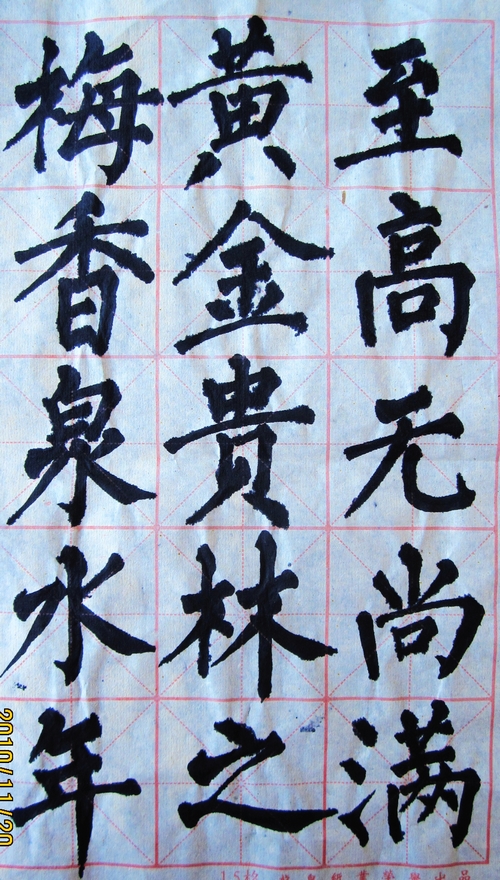 至高无尚满
黄金贵林之
梅香泉水年
2010/11/20